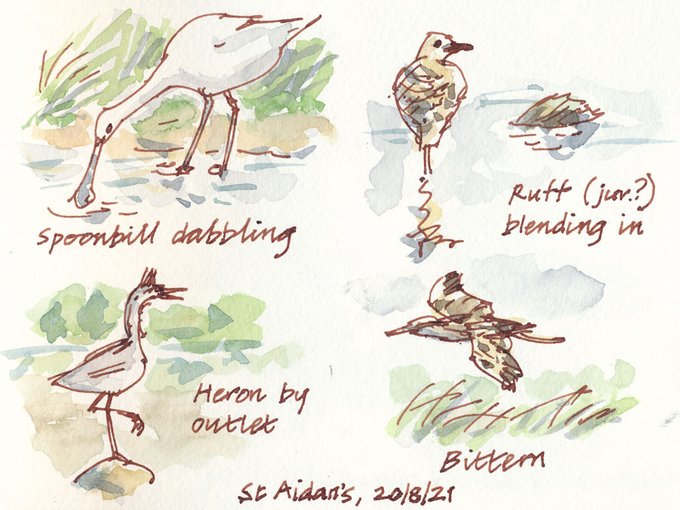 Spoonbill dabbling
Ruff (juv.?)
blending in
Heron by
outlet
Bittern
St Aidan's, 20/8/21